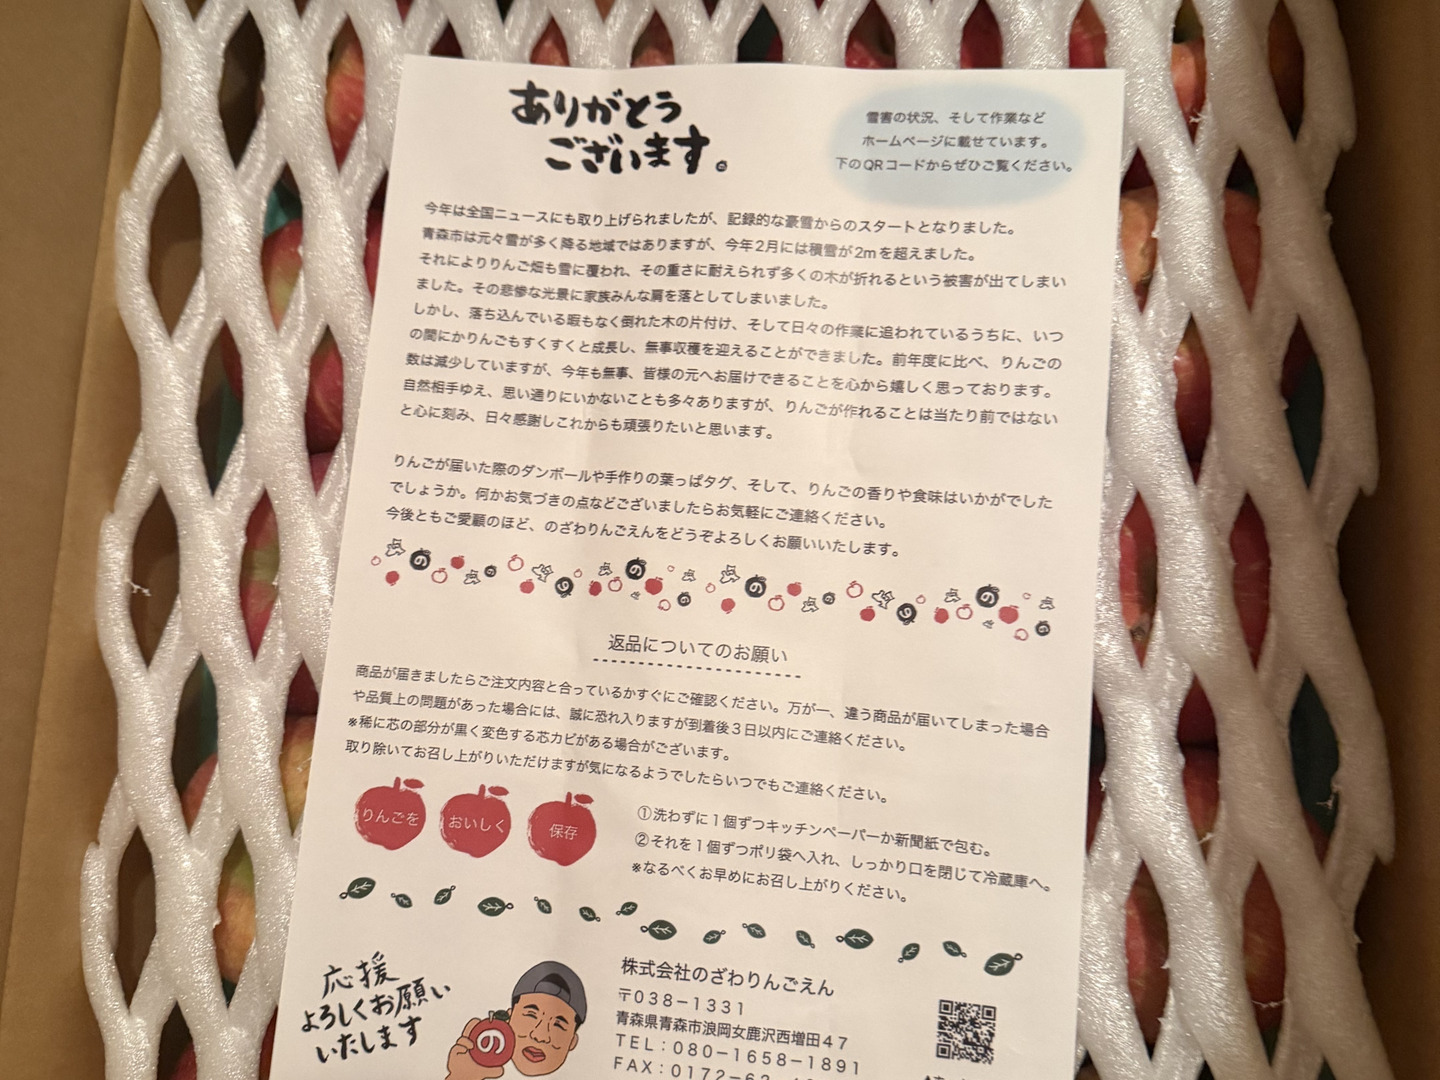 ありがとう
ございます。
雪害の状況、そして作業など
ホームページに載せています。
下のQRコードからぜひご覧ください。
今年は全国ニュースにも取り上げられましたが、記録的な豪雪からのスタートとなりました。
青森市は元々雪が多く降る地域ではありますが、今年2月には積雪が2mを超えました。
それによりりんご畑も雪に覆われ、その重さに耐えられず多くの木が折れるという被害が出てしまい
ました。その悲惨な光景に家族みんな肩を落としてしまいました。
しかし、落ち込んでいる暇もなく倒れた木の片付け、そして日々の作業に追われているうちに、いつ
の間にかりんごもすくすくと成長し、無事収穫を迎えることができました。前年度に比べ、りんごの
数は減少していますが、今年も無事、皆様の元へお届けできることを心から嬉しく思っております。
自然相手ゆえ、思い通りにいかないことも多々ありますが、りんごが作れることは当たり前ではない
と心に刻み、日々感謝しこれからも頑張りたいと思います。
りんごが届いた際のダンボールや手作りの葉っぱタグ、そして、りんごの香りや食味はいかがでした
でしょうか。何かお気づきの点などございましたらお気軽にご連絡ください。
今後ともご愛顧のほど、のざわりんごえんをどうぞよろしくお願いいたします。
返品についてのお願い
商品が届きましたらご注文内容と合っているかすぐにご確認ください。万が一、違う商品が届いてしまった場合
や品質上の問題があった場合には、誠に恐れ入りますが到着後3日以内にご連絡ください。
※稀に芯の部分が黒く変色する芯カビがある場合がございます。
取り除いてお召し上がりいただけますが気になるようでしたらいつでもご連絡ください。
りんごを おいしく 保存
①洗わずに1個ずつキッチンペーパーか新聞紙で包む。
②それを1個ずつポリ袋へ入れ、しっかり口を閉じて冷蔵庫へ。
※なるべくお早めにお召し上がりください。
応援
よろしくお願い
いたします
の
株式会社のざわりんごえん
〒038-1331
青森県青森市浪岡女鹿沢西増田47
TEL：080-1658-1891
FAX：0172-62-